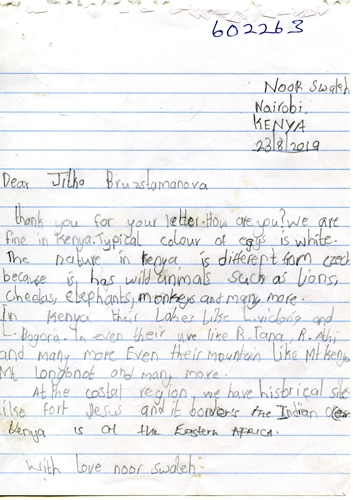 602263
Noor Swaleh
Nairobi,
KENYA
23/8/2019
Dear Jitka Bruzstamanova
thank you for your letter. How are you? we are
fine in Kenya. Typical colour of eggs is white.
The nature in Kenya is different from czech
because is has wild animals such as lions,
cheetas, elephants, monkeys and many more.
In Kenya their Lakes Like L. victoria and
L. Bogoria. In even their like R. Tana, R. Athi
and many more Even their Mountain like Mt Kenya
Mt Longonot and many more.
At the costal region, we have historical site
like fort Jesus and it borders the Indian
Kenya is at the Eastern AFRICA.
With love noor swaleh.